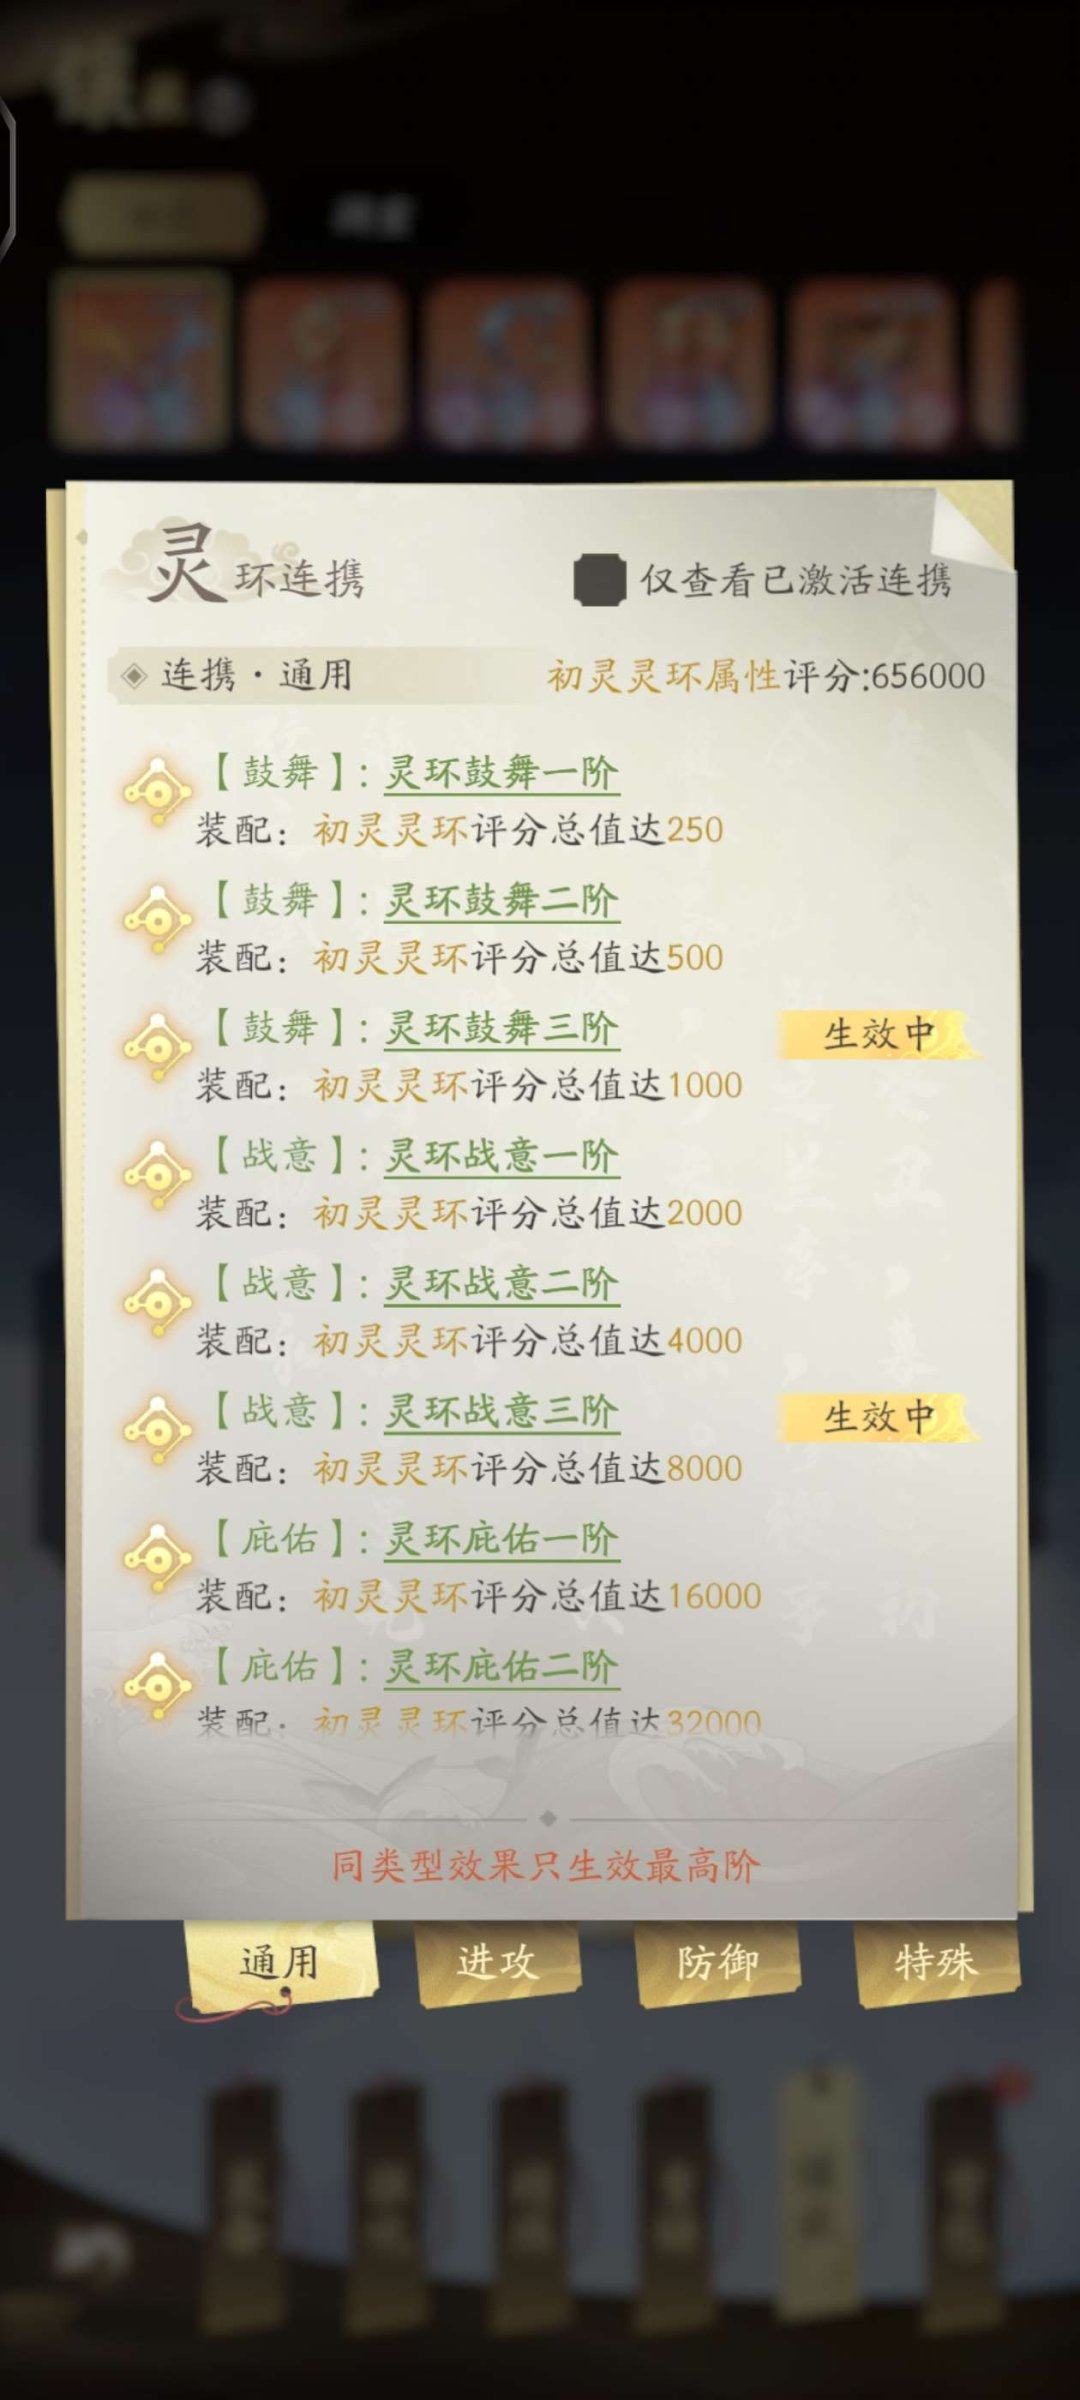 灵环连携
仅查看已激活连携
连携·通用
初灵灵环属性评分:656000
【鼓舞】:灵环鼓舞一阶
装配：初灵灵环评分总值达250
【鼓舞】:灵环鼓舞二阶
装配：初灵灵环评分总值达500
【鼓舞】:灵环鼓舞三阶
生效中
装配：初灵灵环评分总值达1000
【战意】:灵环战意一阶
装配：初灵灵环评分总值达2000
【战意】:灵环战意二阶
装配：初灵灵环评分总值达4000
【战意】:灵环战意三阶
生效中
装配：初灵灵环评分总值达8000
【庇佑】:灵环庇佑一阶
装配：初灵灵环评分总值达16000
【庇佑】:灵环庇佑二阶
装配：初灵灵环评分总值达32000
同类型效果只生效最高阶
通用
进攻
防御
特殊